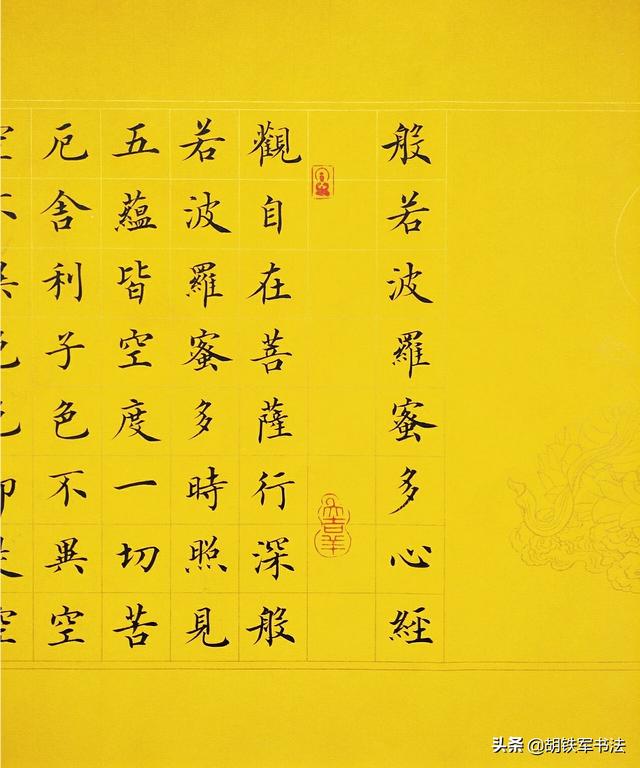 般若波羅蜜多心經
大吉羊
觀自在菩薩行深般
若波羅蜜多時照見
五蘊皆空度一切苦
厄舍利子色不異空
头条 @胡铁军书法